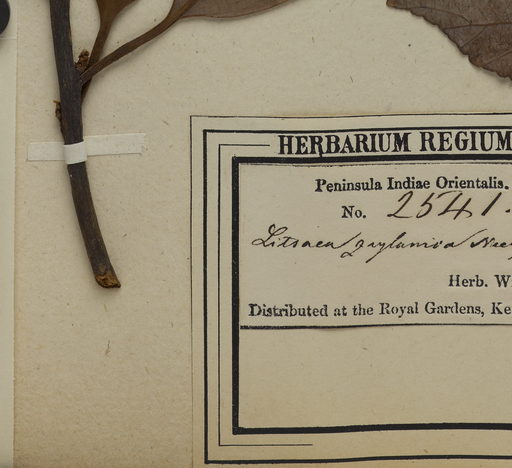 HERBARIUM REGIUM
Peninsula Indiae Orientalis.
No. 2541.
Litsaea zeylanica Nees
Herb. W
Distributed at the Royal Gardens, Ke